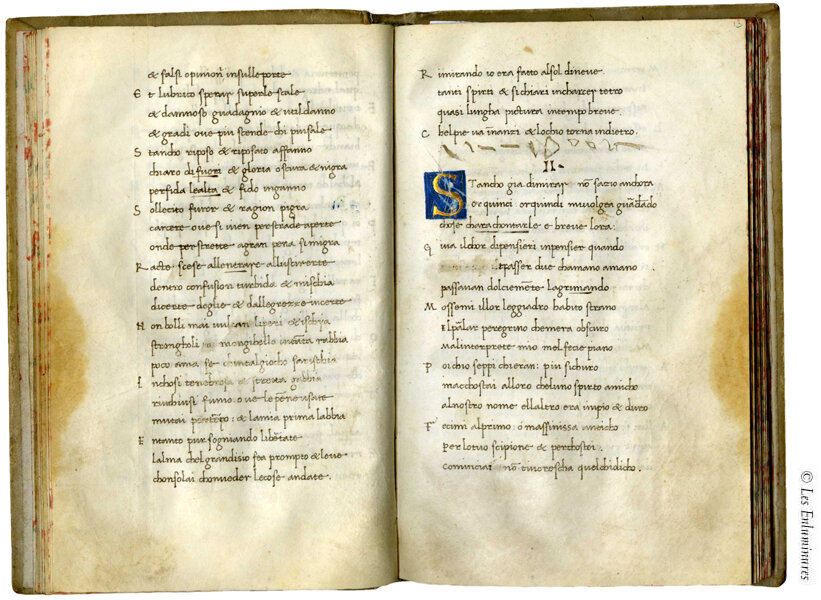 & falsi opinioni insulle porte
E t lubrico sperar super le scale
& dannoso guadagnio & util danno
& gradi ove piu scende chi piu sale
S tancho riposo & riposato affanno
chiaro di fuori & gloria oscura & nigra
perfida lealta & fido inganno
S ollecito furor & ragion pigra
carcere ove si vien per strade aperte
onde per strette a gran pena si migra
R atte scese allentrare alluscir erte
dentro confusion turbida & mischia
di certe doglie & dallegrezze incerte
N on bolli mai vulcan lipari & ischia
strongholi o mongibello in tanta rabbia
poco ama se chintal giocho sarischia
I nchosi tenebrosa & strecta gabbia
rinchiusi fumo ove le penne usate
mutai per tempo & la mia prima labbia
E ntanto pur sogniando libertate
lalma chel gran disio fea prompto & leve
chonsolai chon veder le cose andate.
13
R imirando io era fatto al sol di neve
tanti spirti & si chiari in charcer tetro
quasi lungha pictura in tempo breve.
C hel pie va inanzi & lochio torna indietro.
II.
S Tancho gia di mirar non sazio anchora
or quinci or quindi mi volgea guardando
chose cha rachontarle e breve lora.
G iva il chor di pensier in pensier quando
passer due cha mano a mano
passavan dolcemente lagrimando
M ossemi il lor leggiadro habito strano
El parlar peregrino che mera obscuro
ma linterprete mio mel fecie piano
P oi chio seppi chi eran piu sichuro
macchostai alloro che lun spirto amicho
al nostro nome ellaltro era impio & duro
F ecimi al primo: o massinissa anticho
per lo tuo scipione & per chostei
cominciai non tincrescha quel chi dicho.
© Les Enluminures